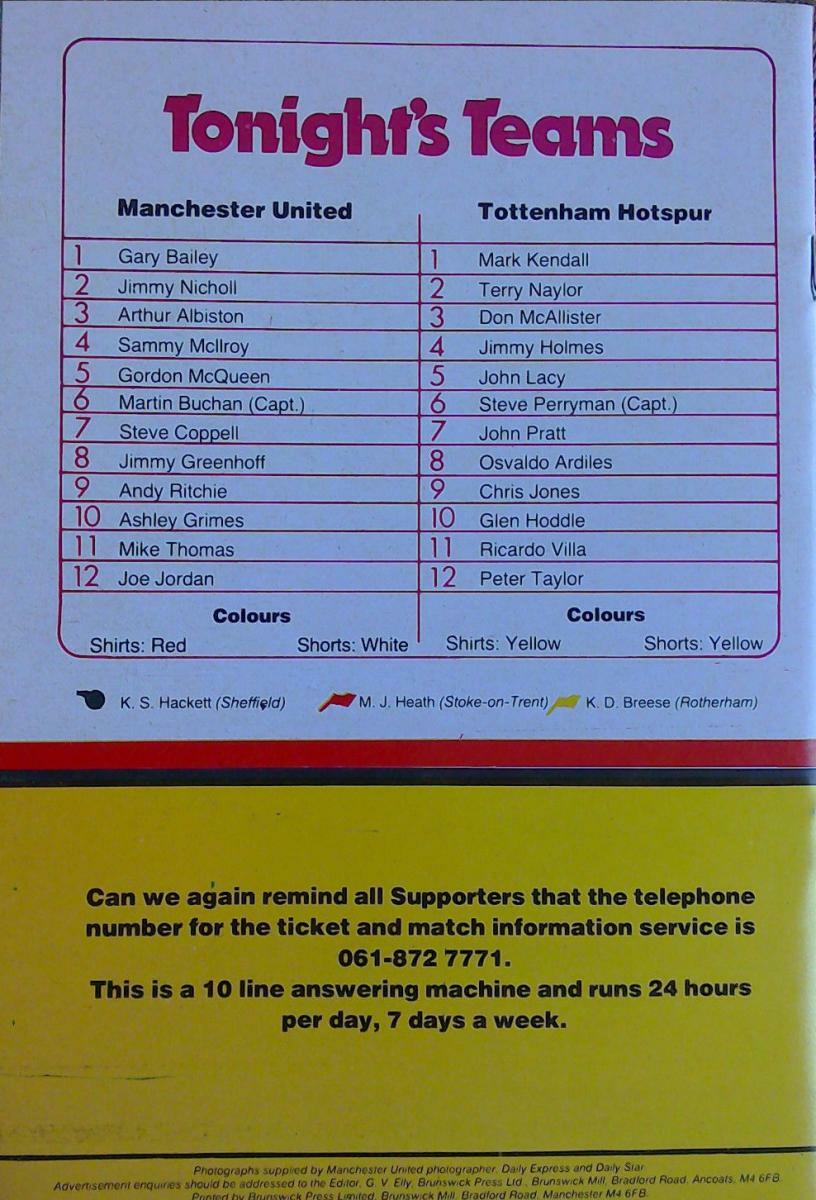 Tonight's Teams
Manchester United
1 Gary Bailey
2 Jimmy Nicholl
3 Arthur Albiston
4 Sammy McIlroy
5 Gordon McQueen
6 Martin Buchan (Capt.)
7 Steve Coppell
8 Jimmy Greenhoff
9 Andy Ritchie
10 Ashley Grimes
11 Mike Thomas
12 Joe Jordan
Colours
Shirts: Red Shorts: White
Tottenham Hotspur
1 Mark Kendall
2 Terry Naylor
3 Don McAllister
4 Jimmy Holmes
5 John Lacy
6 Steve Perryman (Capt.)
7 John Pratt
8 Osvaldo Ardiles
9 Chris Jones
10 Glen Hoddle
11 Ricardo Villa
12 Peter Taylor
Colours
Shirts: Yellow Shorts: Yellow
K. S. Hackett (Sheffield) M. J. Heath (Stoke-on-Trent) K. D. Breese (Rotherham)
Can we again remind all Supporters that the telephone
number for the ticket and match information service is
061-872 7771.
This is a 10 line answering machine and runs 24 hours
per day, 7 days a week.
Photographs supplied by Manchester United photographer, Daily Express and Daily Star
Advertisement enquiries should be addressed to the Editor, G. V. Elly, Brunswick Press Ltd., Brunswick Mill, Bradford Road, Ancoats, M4 6FB.
Printed by Brunswick Press Limited, Brunswick Mill, Bradford Road, Manchester M4 6FB.